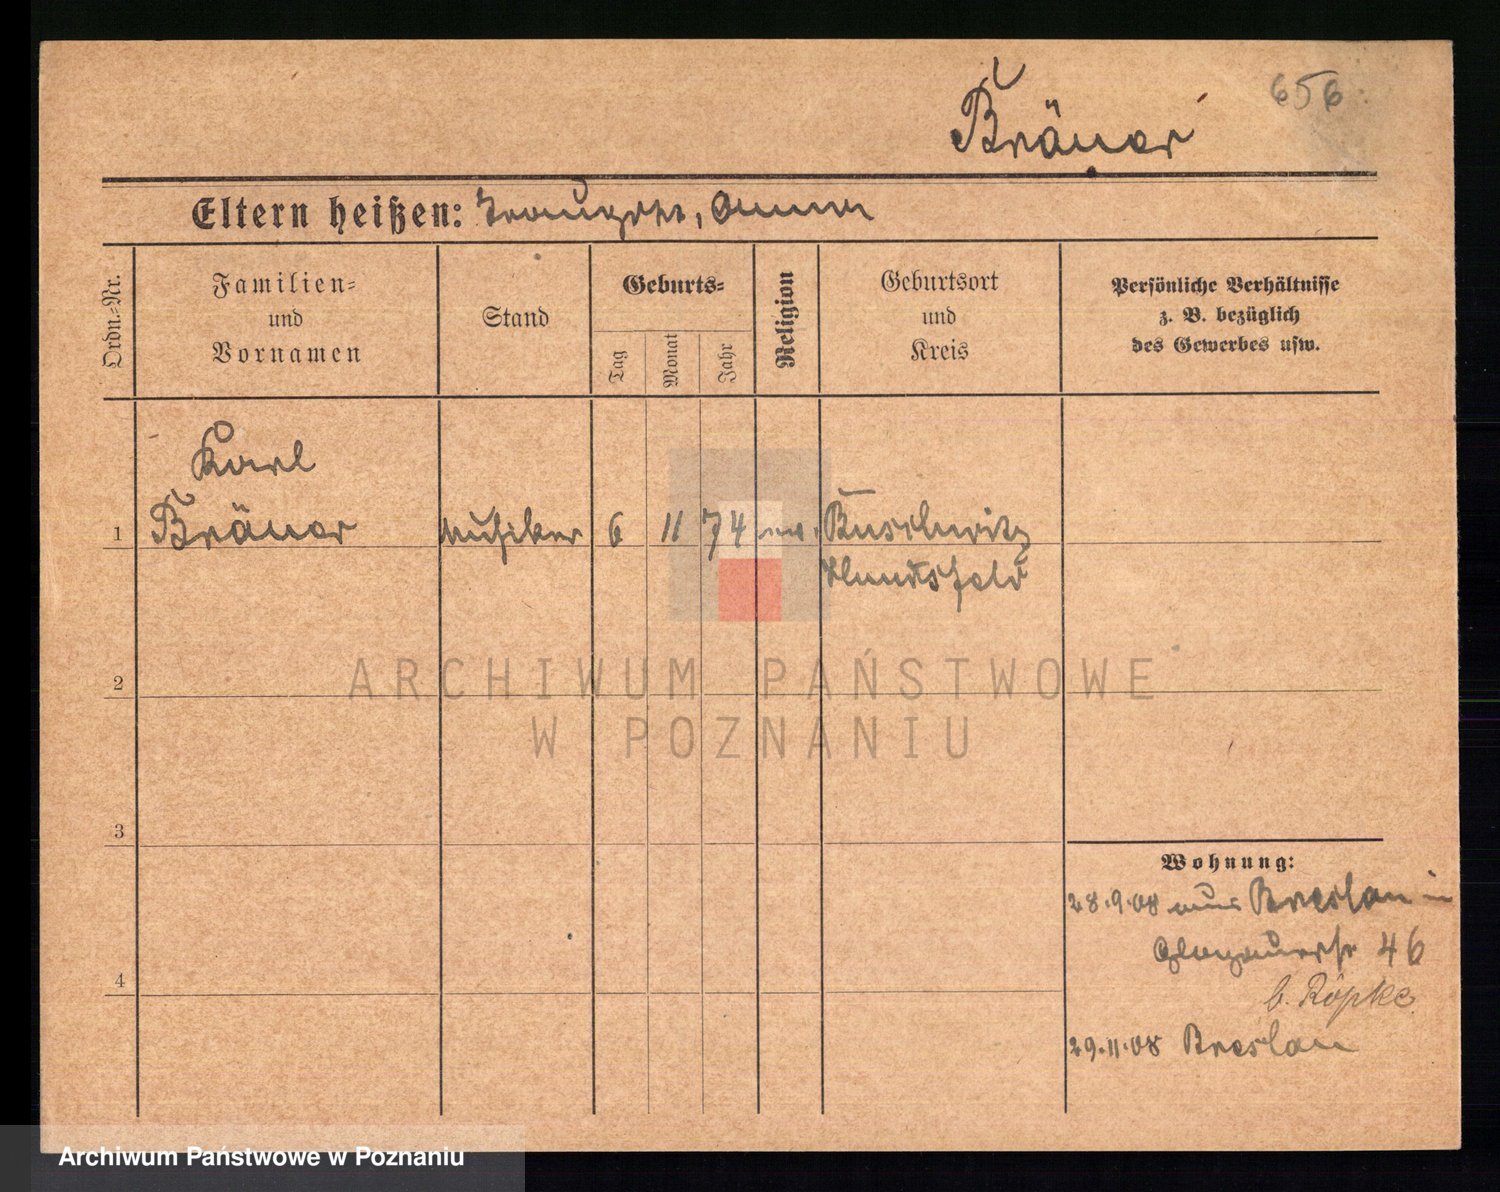 656
Bräuer
Eltern heißen:
Ordn.-Nr.
Familien-
und
Vornamen
Stand
Geburts-
Tag
Monat
Jahr
Religion
Geburtsort
und
Kreis
Persönliche Verhältnisse
z. B. bezüglich
des Gewerbes usw.
Karl
1 Bräuer Musiker 6 11 74 ev. Buschwitz
Hundsfeld
2
ARCHIWUM PAŃSTWOWE
W POZNANIU
3
Wohnung:
28.9.08 aus Breslau in
Glogauerstr 46
b. Röpke
4
29.11.08 Breslau
Archiwum Państwowe w Poznaniu